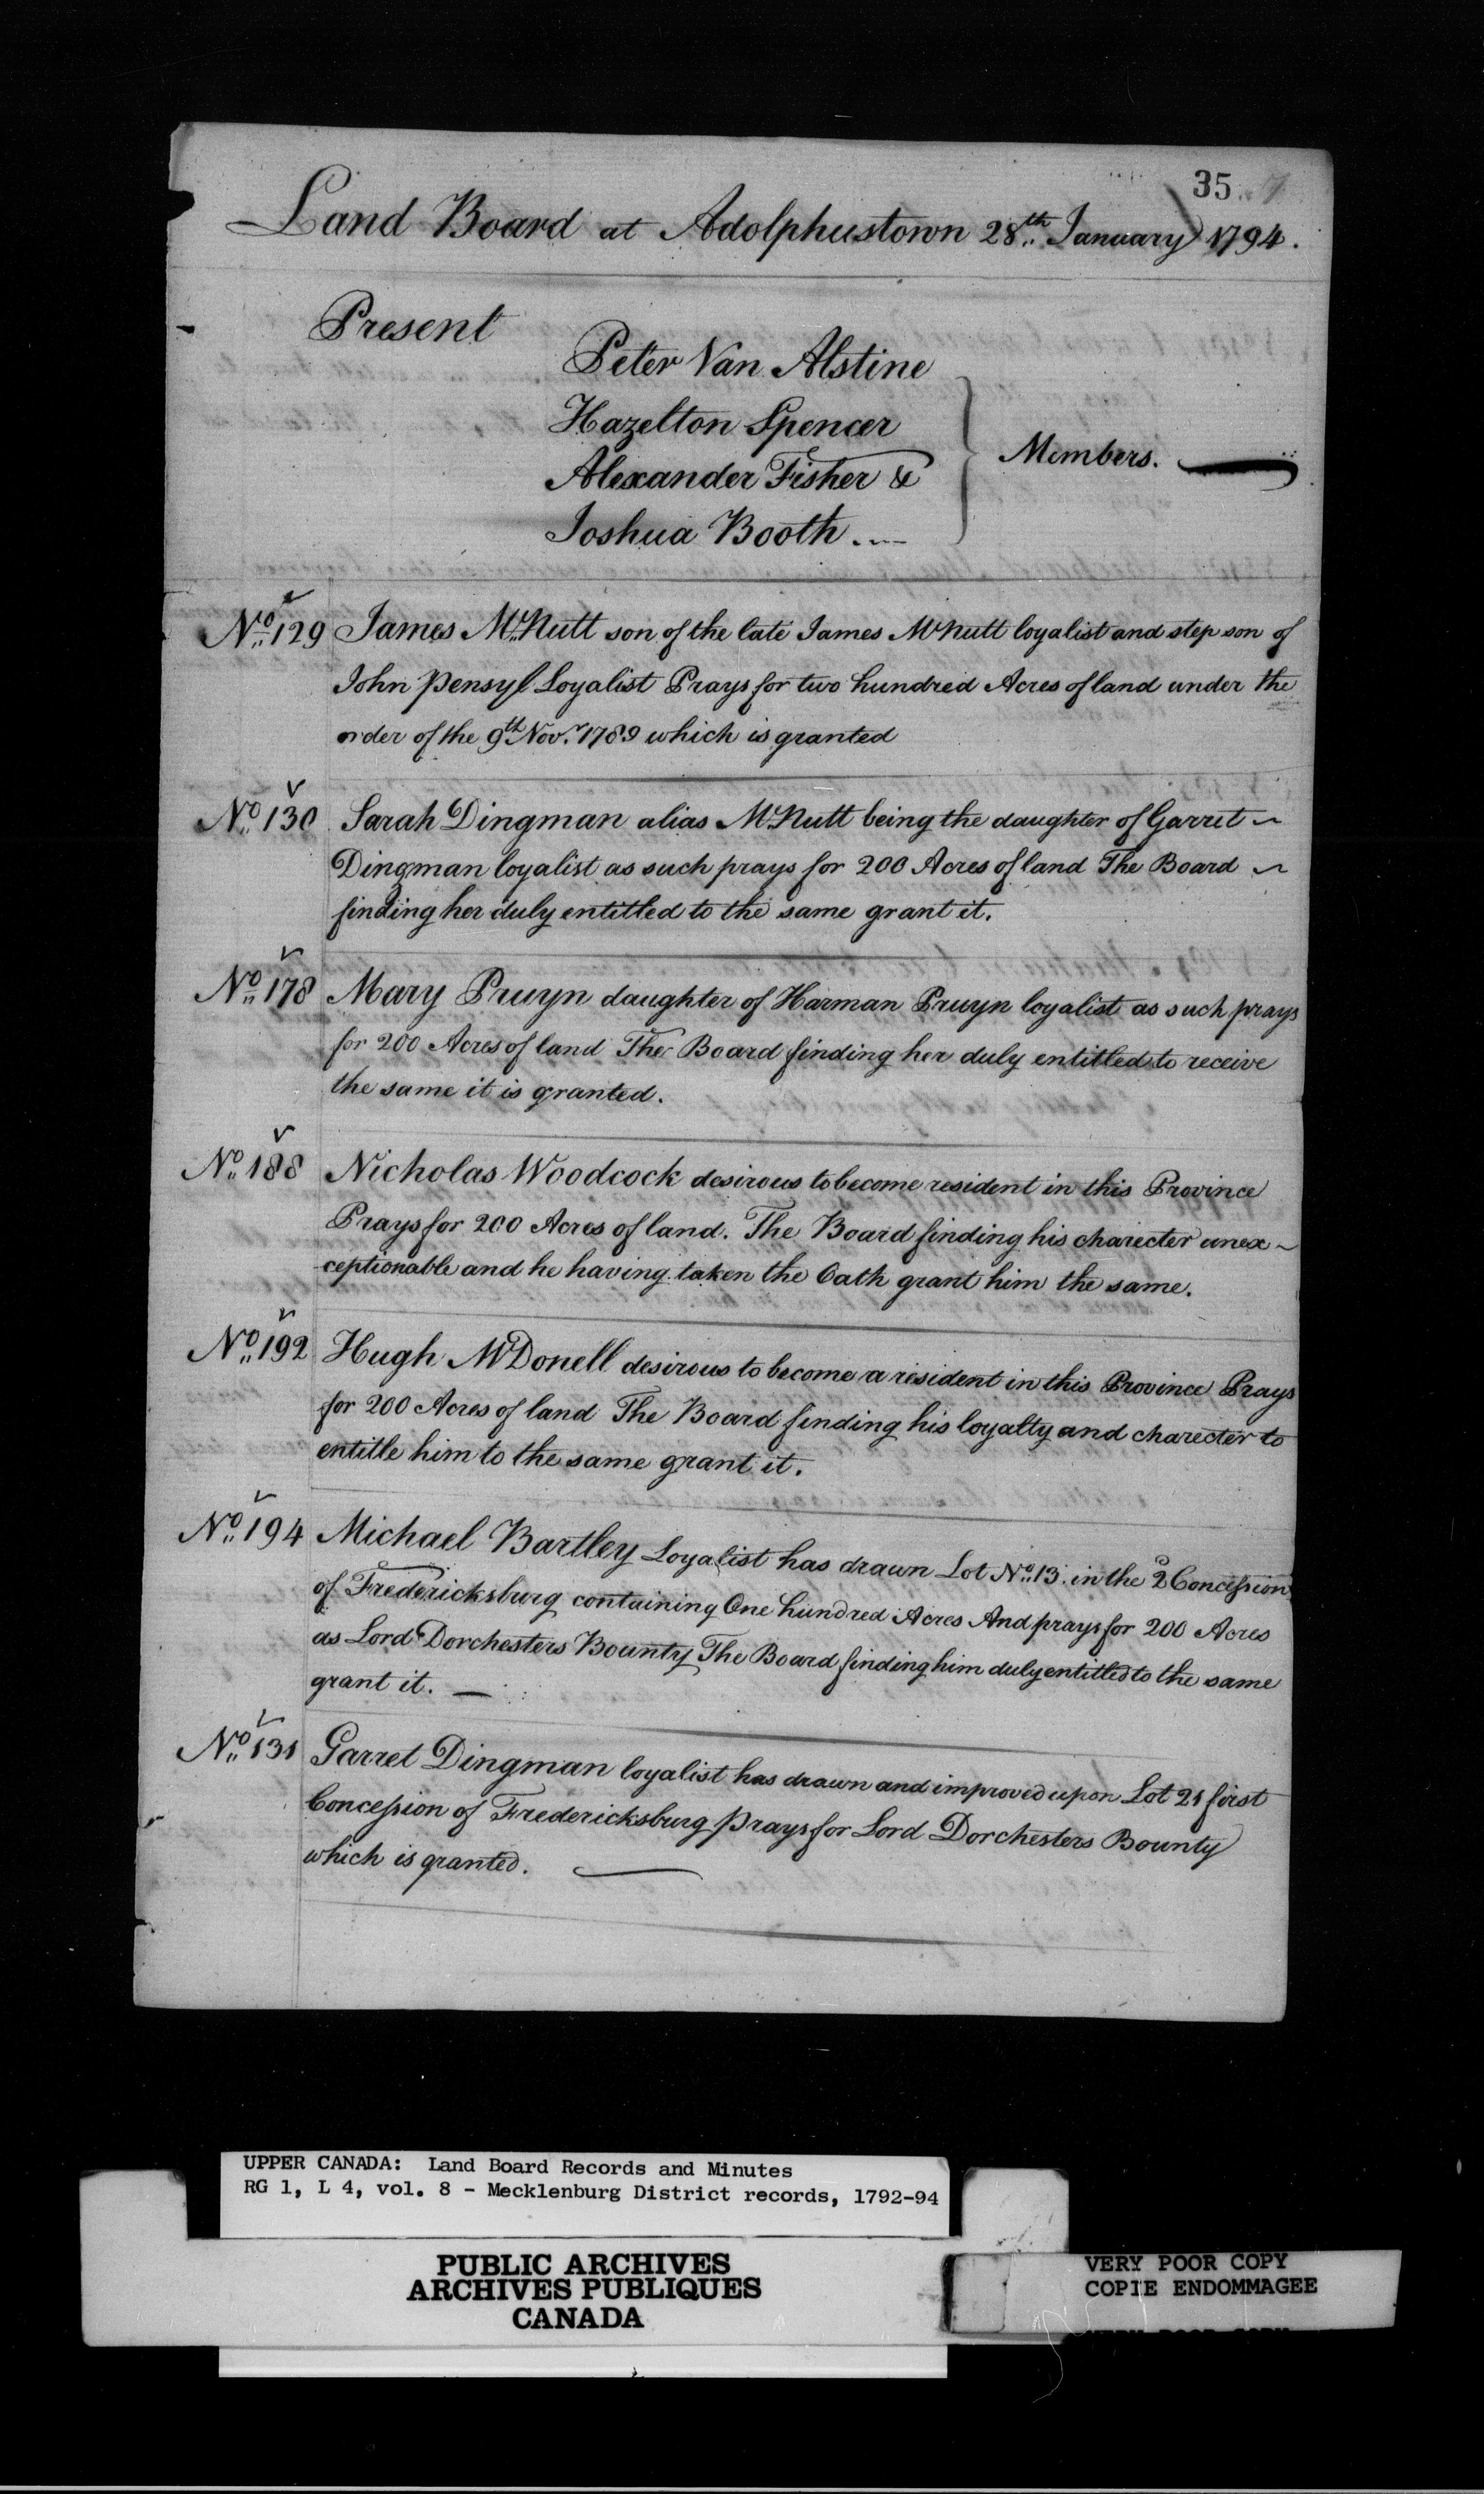 35
Land Board at Adolphustown 28th January 1794.
Present
Peter Van Alstine
Hazelton Spencer
Alexander Fisher &
Joshua Booth.
Members.
No 129 James McNutt son of the late James McNutt loyalist and step son of
John Pensyl Loyalist Prays for two hundred Acres of land under the
order of the 9th Novr 1789 which is granted
No 130 Sarah Dingman alias McNutt being the daughter of Garret
Dingman loyalist as such prays for 200 Acres of land The Board
finding her duly entitled to the same grant it.
No 178 Mary Pruyn daughter of Harman Pruyn loyalist as such prays
for 200 Acres of land The Board finding her duly entitled to receive
the same it is granted.
No 188 Nicholas Woodcock desirous to become resident in this Province
Prays for 200 Acres of land. The Board finding his charecter unex-
ceptionable and he having taken the Oath grant him the same.
No 192 Hugh McDonell desirous to become a resident in this Province Prays
for 200 Acres of land The Board finding his loyalty and charecter to
entitle him to the same grant it.
No 194 Michael Bartley Loyalist has drawn Lot No 13. in the 2d Concession
of Fredericksburg containing One hundred Acres And prays for 200 Acres
as Lord Dorchesters Bounty The Board finding him duly entitled to the same
grant it.
No 131 Garret Dingman loyalist has drawn and improved upon Lot 21 first
Concession of Fredericksburg prays for Lord Dorchesters Bounty
which is granted.
UPPER CANADA: Land Board Records and Minutes
RG 1, L 4, vol. 8 - Mecklenburg District records, 1792-94
PUBLIC ARCHIVES
ARCHIVES PUBLIQUES
CANADA
VERY POOR COPY
COPIE ENDOMMAGEE